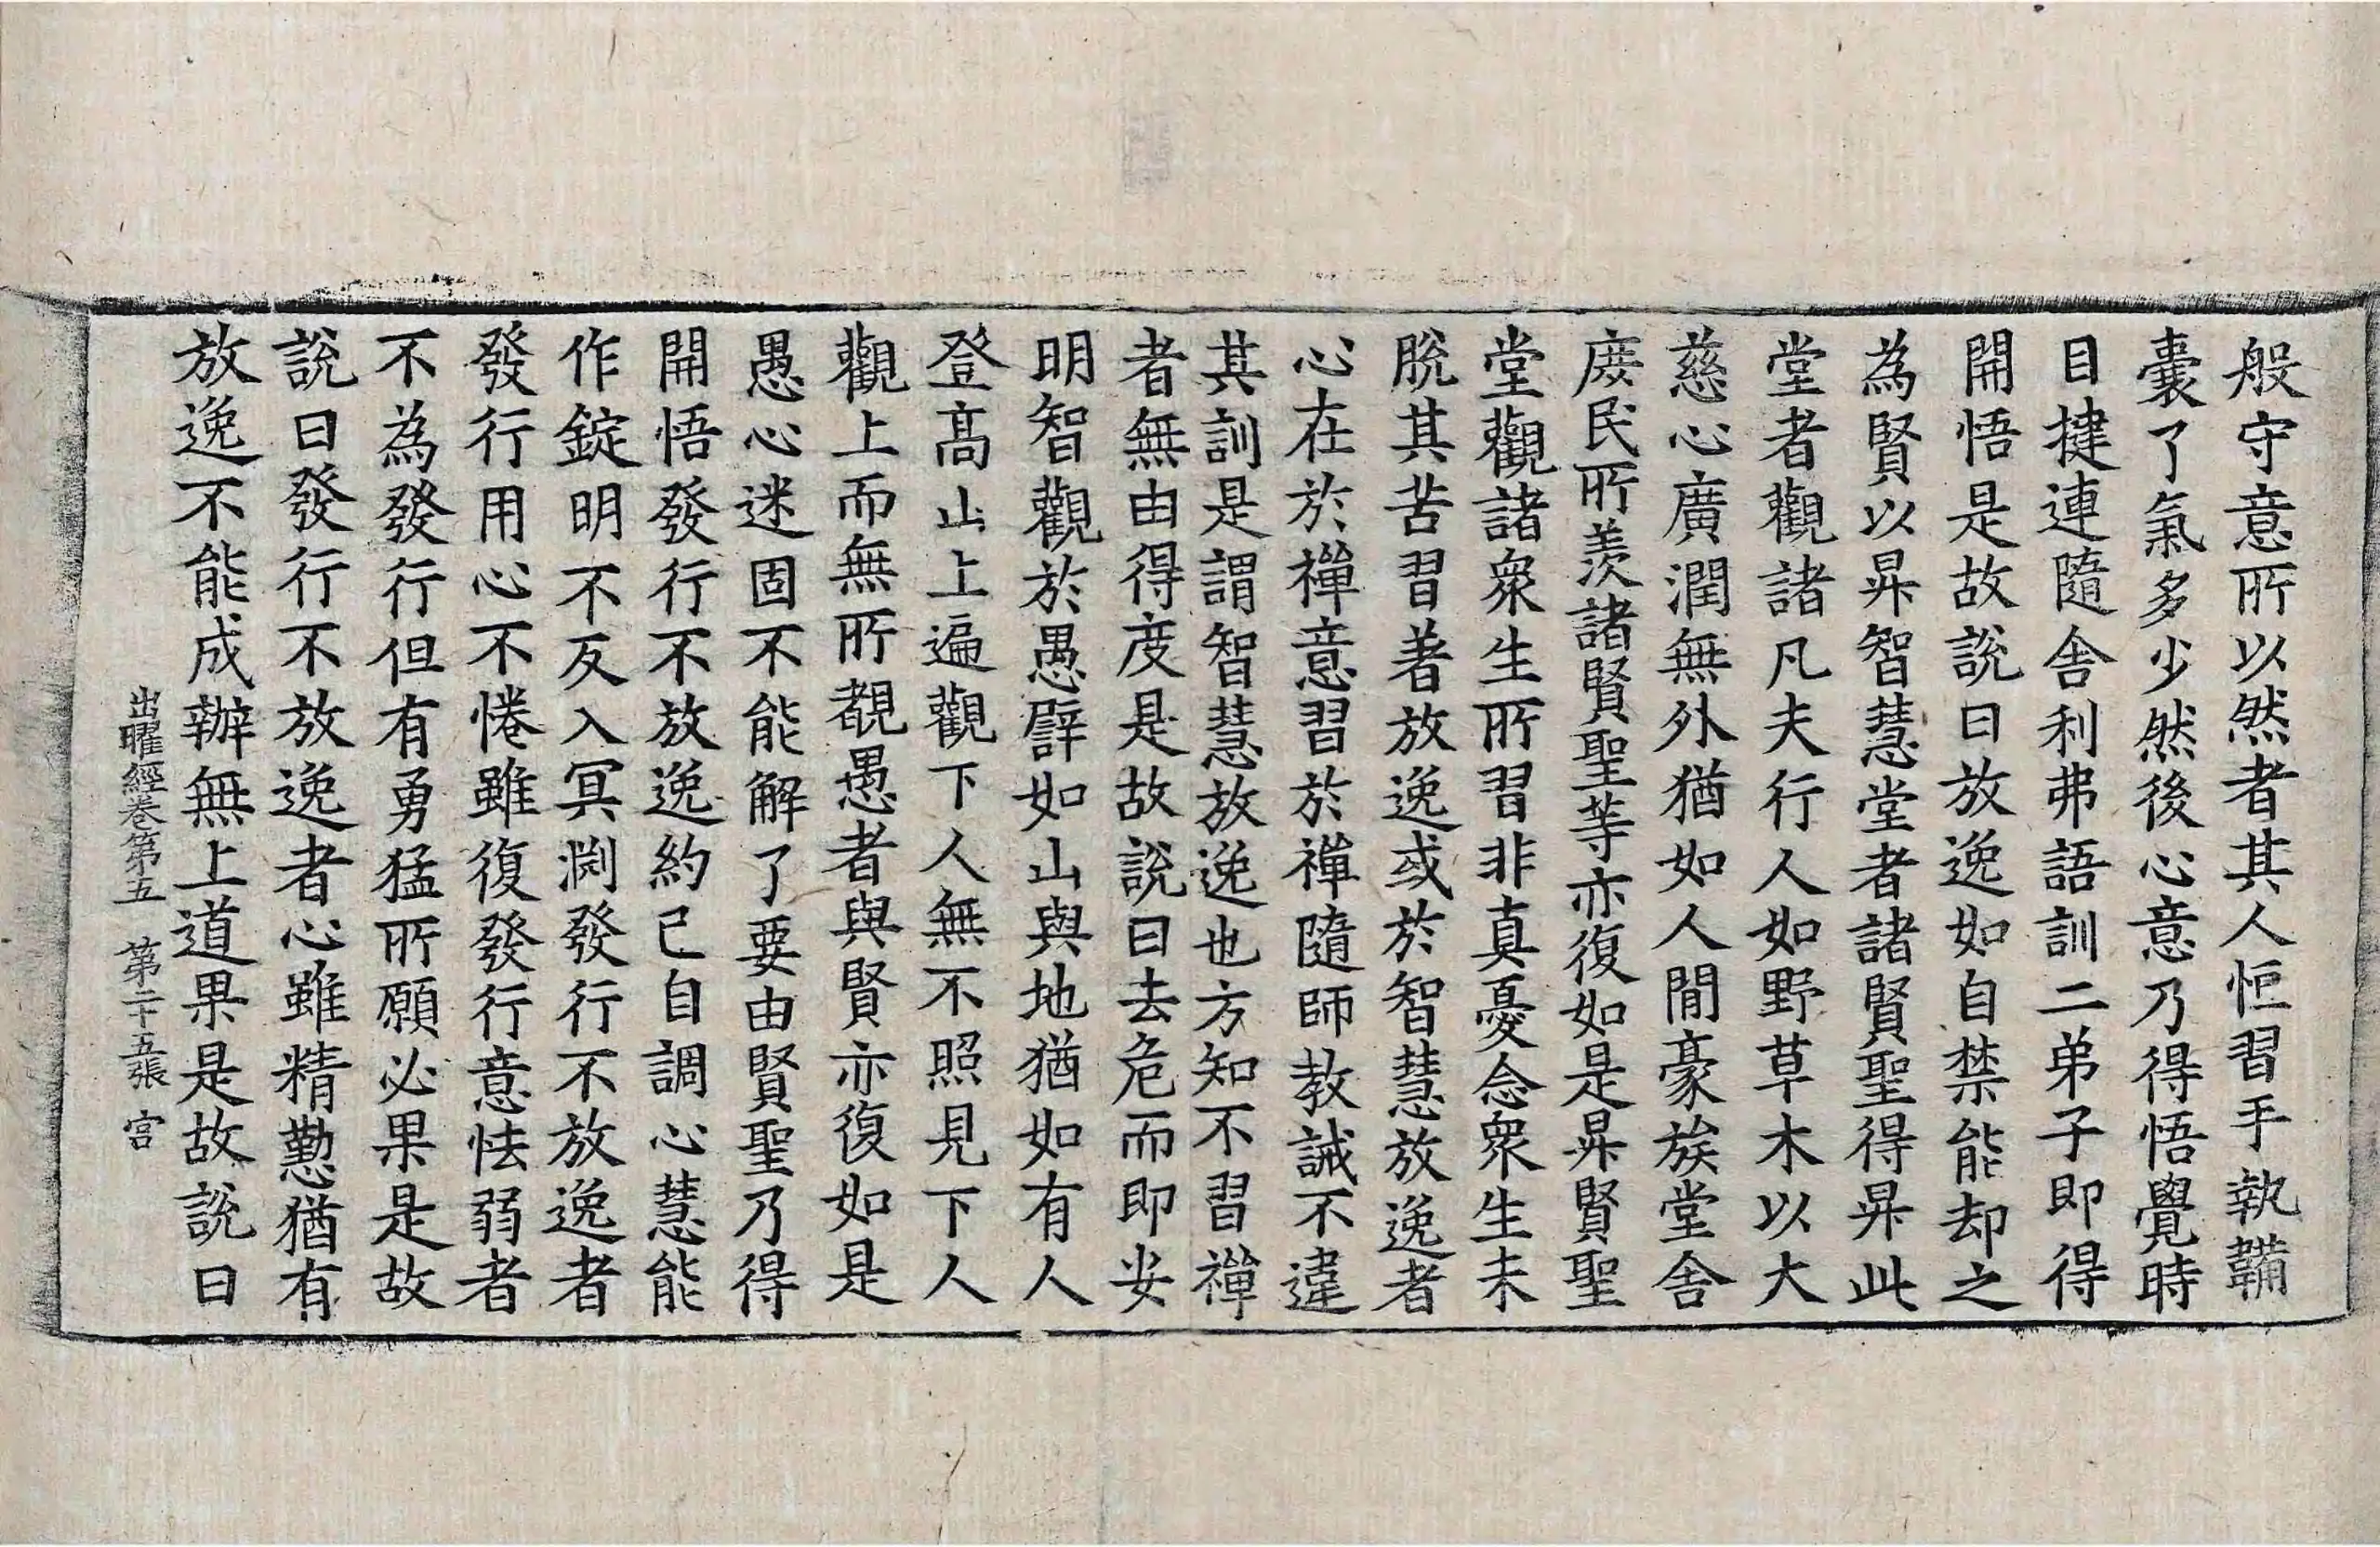 般守意所以然者其人恒習手執鞴
囊了氣多少然後心意乃得悟覺時
目揵連隨舍利弗語訓二弟子即得
開悟是故說曰放逸如自禁能却之
為賢以昇智慧堂者諸賢聖得昇此
堂者觀諸凡夫行人如野草木以大
慈心廣潤無外猶如人間豪族堂舍
庶民所羨諸賢聖等亦復如是昇賢聖
堂觀諸衆生所習非真憂念衆生未
脫其苦習著放逸或於智慧放逸者
心在於禪意習於禪隨師教誡不違
其訓是謂智慧放逸也方知不習禪
者無由得度是故說曰去危而即安
明智觀於愚譬如山與地猶如有人
登高山上遍觀下人無不照見下人
觀上而無所覩愚者與賢亦復如是
愚心迷固不能解了要由賢聖乃得
開悟發行不放逸約己自調心慧能
作錠明不反入冥淵發行不放逸者
發行用心不惓雖復發行意怯弱者
不為發行但有勇猛所願必果是故
說曰發行不放逸者心雖精懃猶有
放逸不能成辦無上道果是故說曰
出曜經卷第五　第二十五張　宮